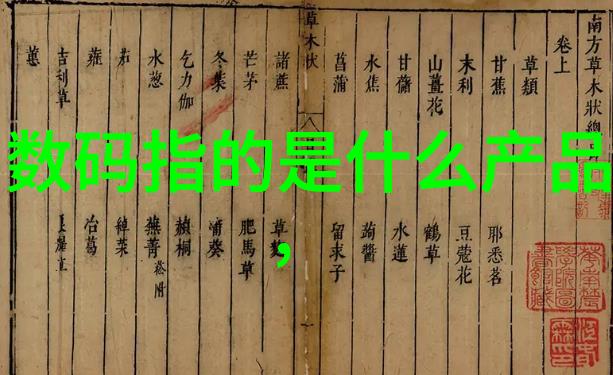 数码指的是什么产品，
南方草木狀總
卷上
草類
甘蕉 耶悉茗
末利 豆蔻花
山薑花 鶴草
甘藷 水蓮
水蕉 蒟醬
菖蒲 留求子
草木狀
諸蔗 草麴
芒茅 肥馬草
冬葉 蒲葵
乞力伽 赬桐
水葱 蕪菁 菘附
茄 綽菜
蕹 冶葛
吉利草
蕙